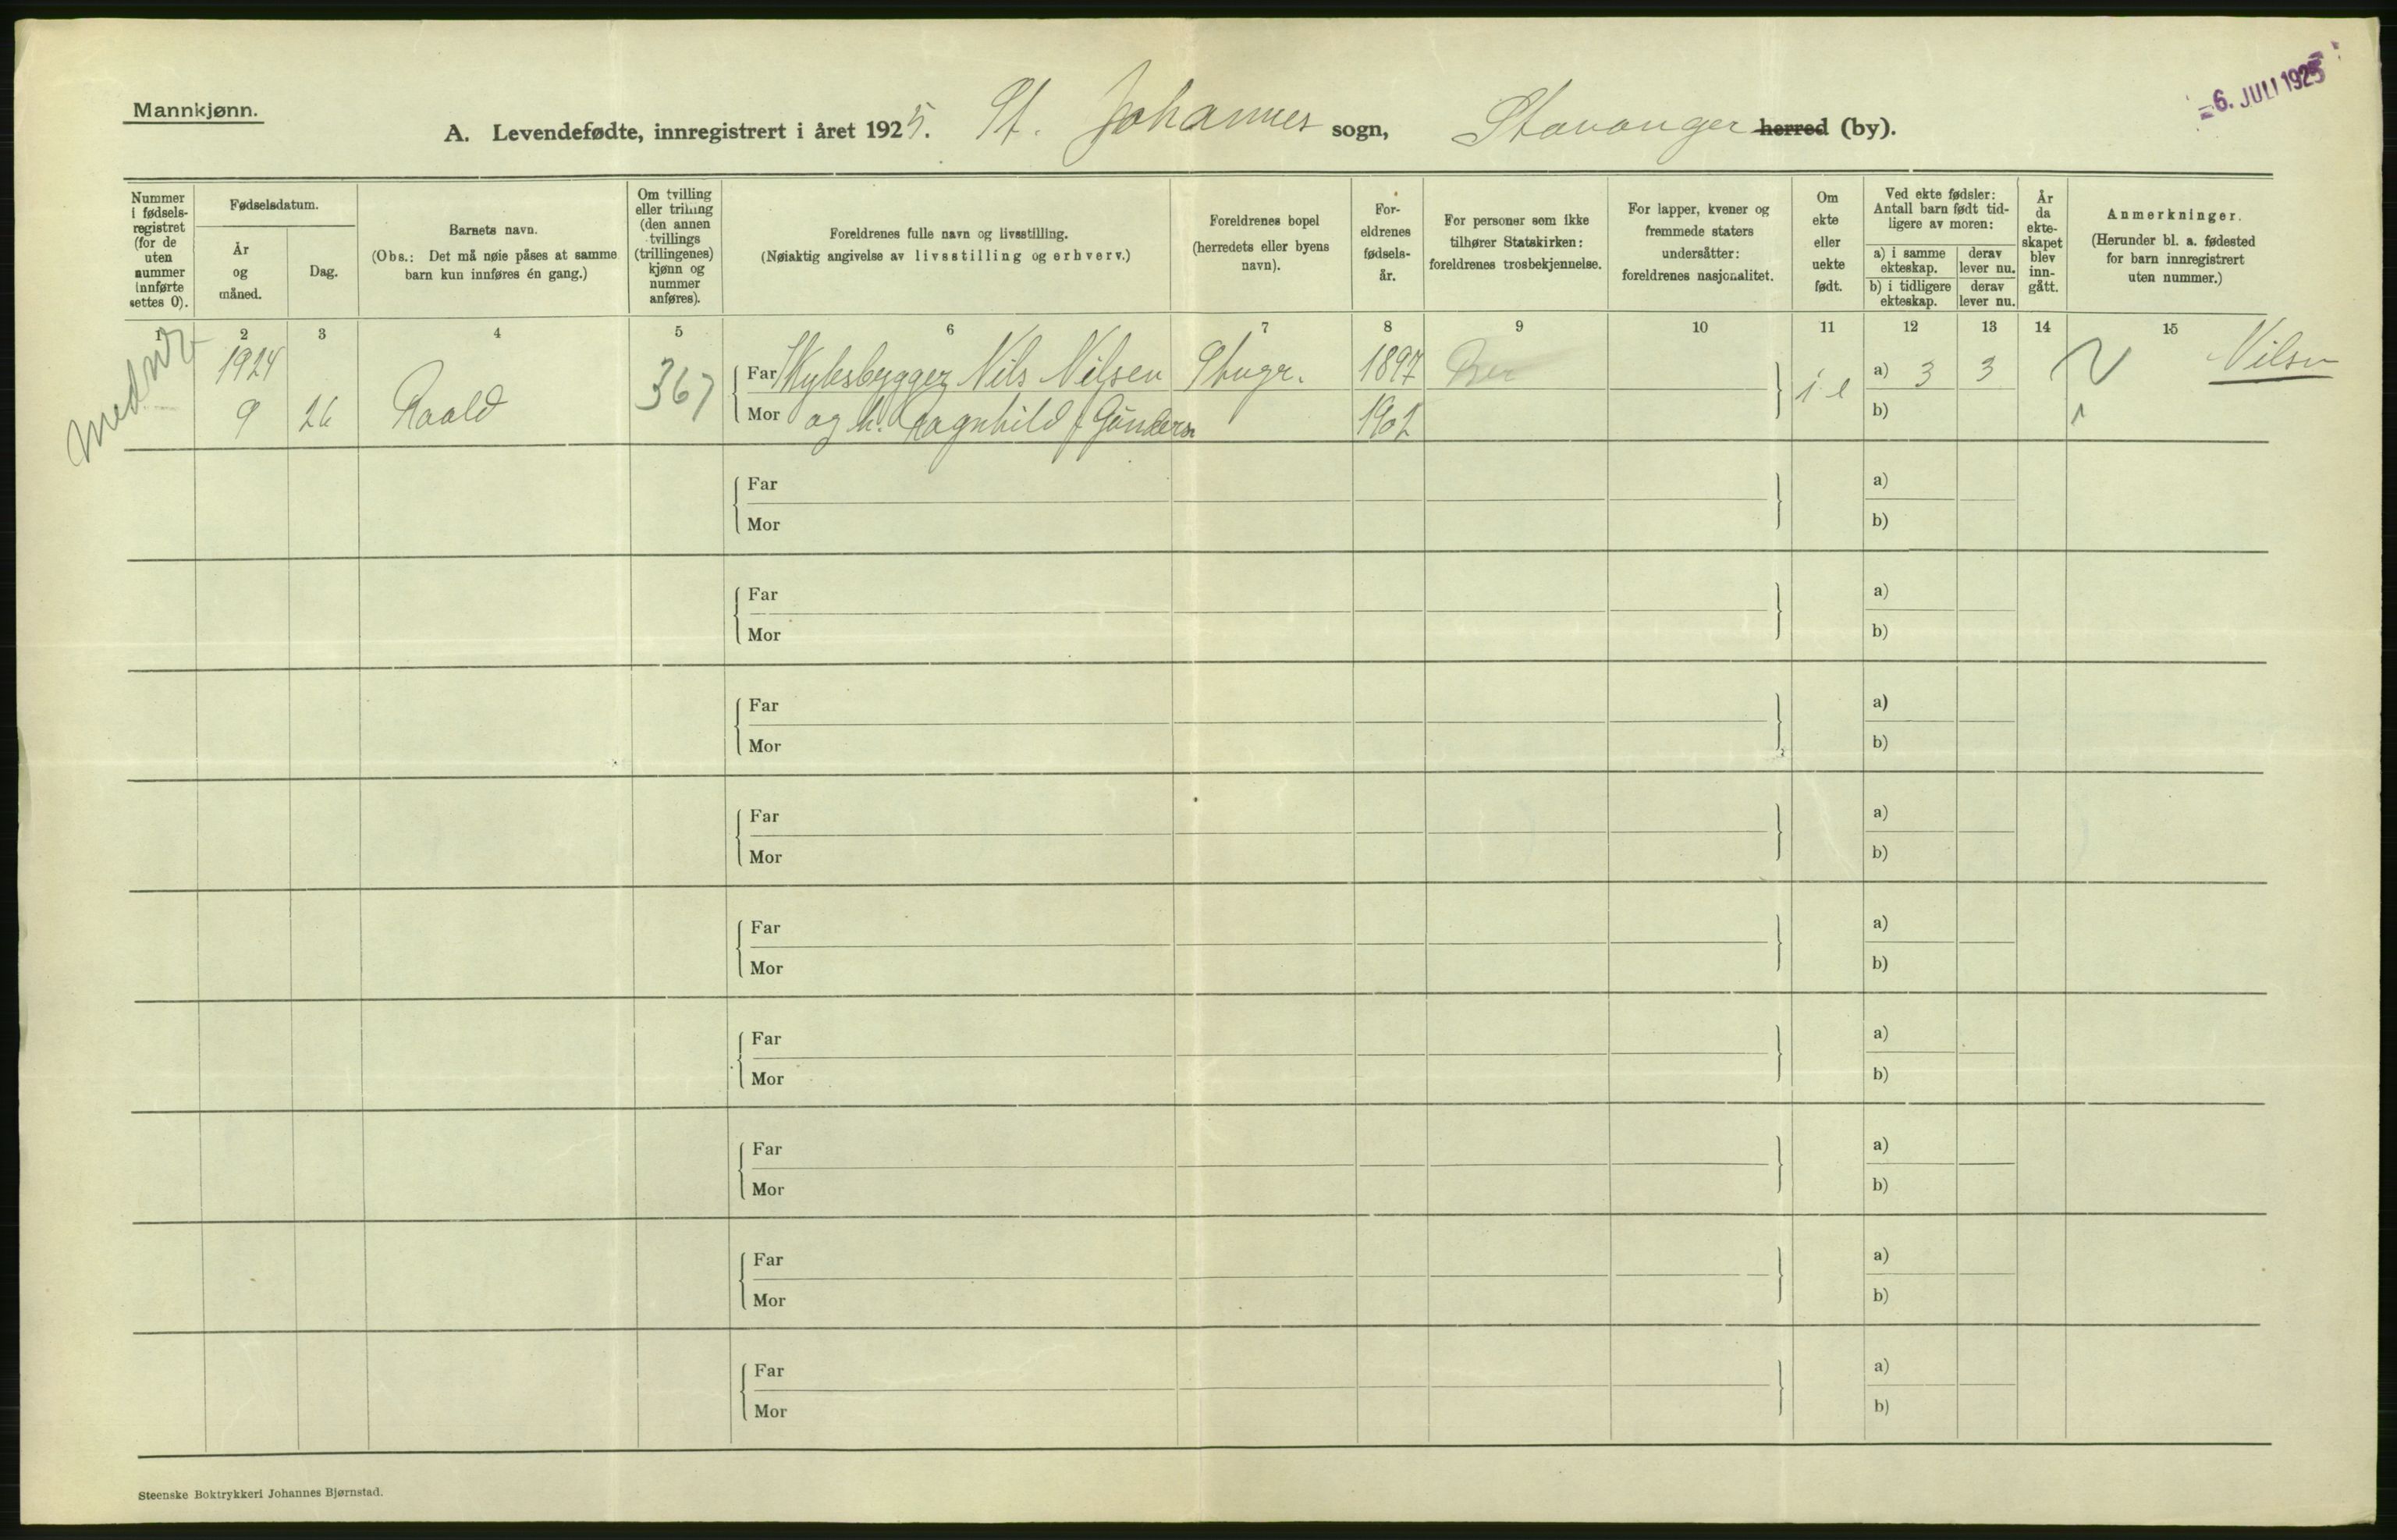 Mannkjønn.
6. JULI 1925
A. Levendefødte, innregistrert i året 1925. St. Johannes sogn, Stavanger herred (by).
Nummer i fødsels-registret (for de uten nummer innførte settes 0).
Fødselsdatum.
År og måned.
Dag.
Barnets navn.
(Obs.: Det må nøie påses at samme barn kun innføres én gang.)
Om tvilling eller trilling (den annen tvillings (trillingenes) kjønn og nummer anføres).
Foreldrenes fulle navn og livsstilling.
(Nøiaktig angivelse av livsstilling og erhverv.)
Foreldrenes bopel (herredets eller byens navn).
For-eldrenes fødsels-år.
For personer som ikke tilhører Statskirken: foreldrenes trosbekjennelse.
For lapper, kvener og fremmede staters undersåtter: foreldrenes nasjonalitet.
Om ekte eller uekte født.
Ved ekte fødsler: Antall barn født tid-ligere av moren:
a) i samme ekteskap.
derav lever nu.
b) i tidligere ekteskap.
derav lever nu.
År da ekte-skapet blev inn-gått.
Anmerkninger.
(Herunder bl. a. fødested for barn innregistrert uten nummer.)
1 2 3 4 5 6 7 8 9 10 11 12 13 14 15
1924
9 26 Raald 367
Far Nils Nilsen Stvgr. 1897
Mor og h. Ragnhild f Gundersen 1901
a) 3 3
b)
Nilsen
Far a)
Mor b)
Far a)
Mor b)
Far a)
Mor b)
Far a)
Mor b)
Far a)
Mor b)
Far a)
Mor b)
Far a)
Mor b)
Far a)
Mor b)
Far a)
Mor b)
Steenske Boktrykkeri Johannes Bjørnstad.